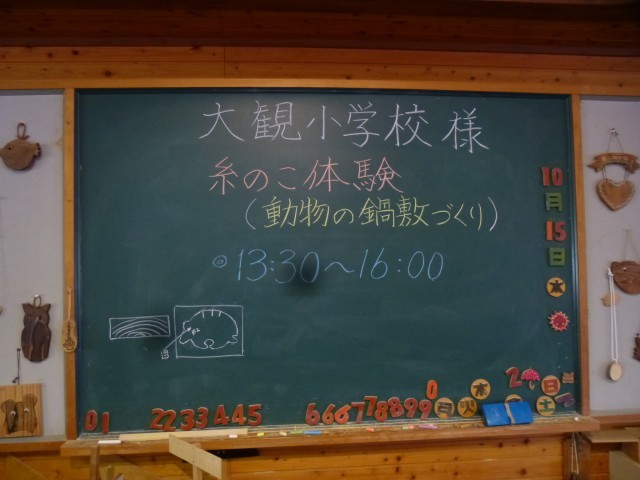 大観小学校様
糸のこ体験
(動物の鍋敷づくり)
◎13:30〜16:00
10
月
15
日
水
01 22334455 6667788899
0
月 火 木 土
2 日